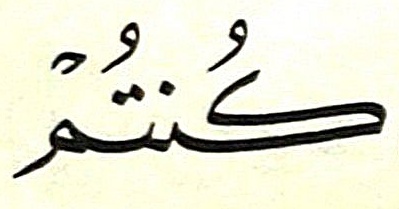 كُنتُمْ